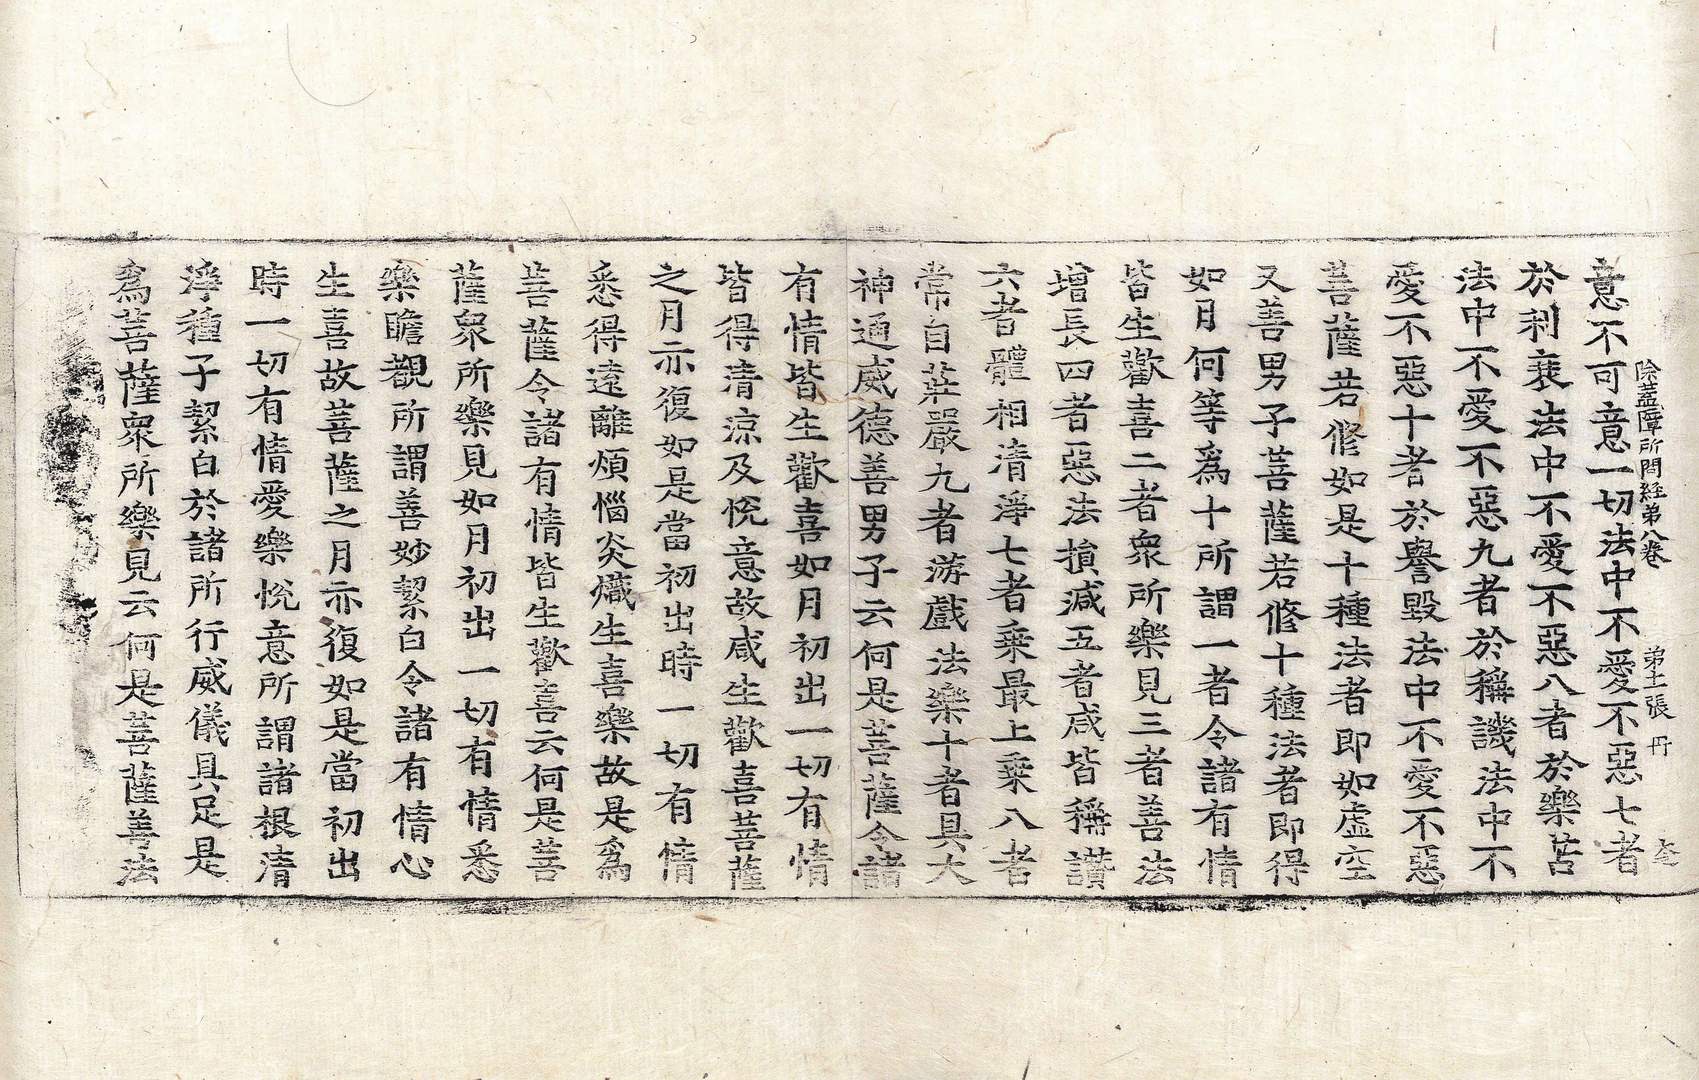 除蓋障所問經第八卷　第十張　丹
意不可意一切法中不愛不惡七者
於利衰法中不愛不惡八者於樂苦
法中不愛不惡九者於稱譏法中不
愛不惡十者於譽毀法中不愛不惡
菩薩若修如是十種法者即如虛空
又善男子菩薩若修十種法者即得
如月何等爲十所謂一者令諸有情
皆生歡喜二者衆所樂見三者善法
增長四者惡法損減五者咸皆稱讚
六者體相清淨七者乗最上乗八者
常自莊嚴九者游戲法樂十者具大
神通威德善男子云何是菩薩令諸
有情皆生歡喜如月初出一切有情
皆得清涼及悅意故咸生歡喜菩薩
之月亦復如是當初出時一切有情
悉得遠離煩惱炎熾生喜樂故是爲
菩薩令諸有情皆生歡喜云何是菩
薩衆所樂見如月初出一切有情悉
樂瞻觀所謂善妙潔白令諸有情心
生喜故菩薩之月亦復如是當初出
時一切有情愛樂悅意所謂諸根清
淨種子潔白於諸所行威儀具足是
爲菩薩衆所樂見云何是菩薩善法